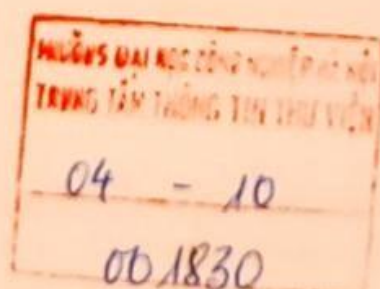 TRƯỜNG ĐẠI HỌC CÔNG NGHIỆP HÀ NỘI
TRUNG TÂM THÔNG TIN THƯ VIỆN
04 - 10
001830